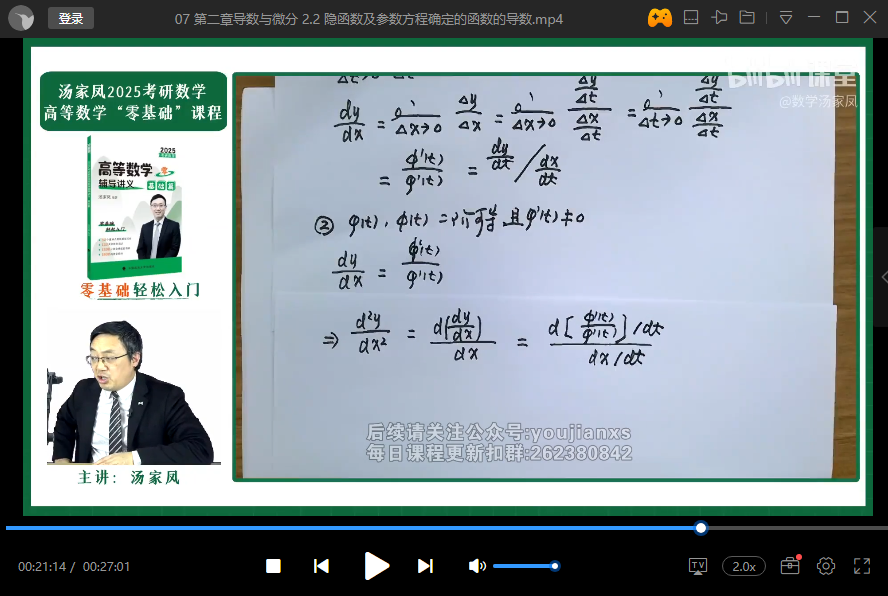 登录
07 第二章导数与微分 2.2 隐函数及参数方程确定的函数的导数.mp4
汤家凤2025考研数学
高等数学“零基础”课程
2025
高等数学
辅导讲义
基础篇
零基础
轻松入门
零基础轻松入门
主讲：汤家凤
bilibili 课堂
@数学汤家凤
Δt→0 Δt
dy/dx = lim Δx→0 Δy/Δx = lim Δx→0 (Δy/Δt)/(Δx/Δt) = lim Δt→0 (Δy/Δt)/(Δx/Δt)
= ϕ'(t)/φ'(t) = dy/dt / dx/dt
② φ(t), ϕ(t) 二阶可导 且 φ'(t)≠0
dy/dx = ϕ'(t)/φ'(t)
⇒ d²y/dx² = d(dy/dx)/dx = d[ϕ'(t)/φ'(t)]/dt / dx/dt
后续请关注公众号:youjianxs
每日课程更新扣群:262380842
00:21:14 / 00:27:01
TV
2.0x